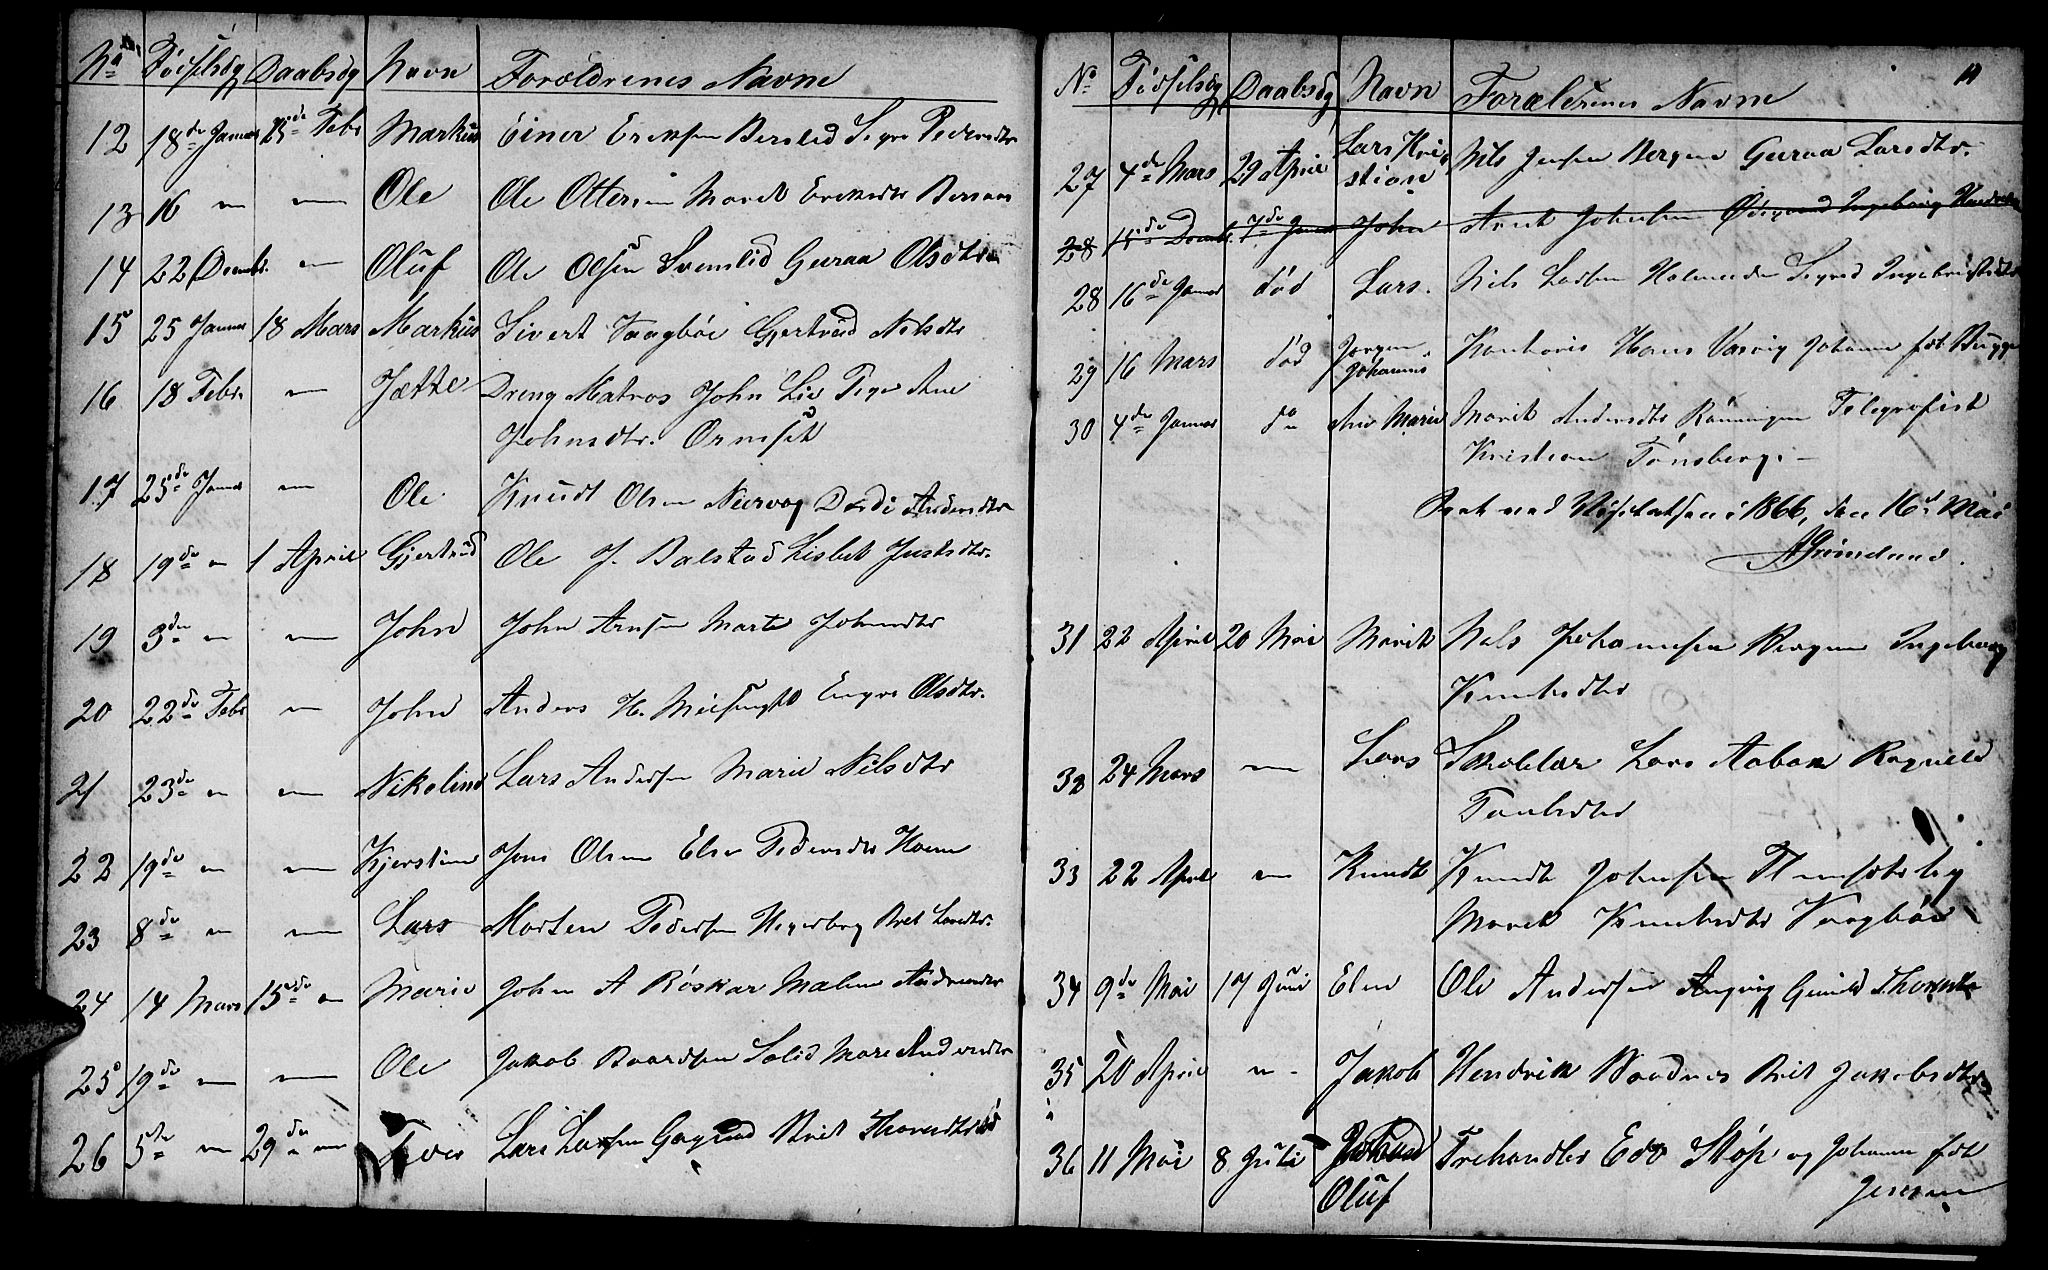 No Fødselsdg Daabsdg Navn Forældrenes Navne
12 18de Januar 25de Febr Markus Einer Eriksen Berslid Sigri Pedersdtr
13 16 — — Ole Ole Ottersen Marit Eriksdtr
14 22 Decmbr. — Oluf Ole Olsen Svenslid Guraa Olsdtr
15 25 Januar 18 Mars Markus Sivert Vaagbøe Gjertrud Nilsdtr
16 18 Febr. — Jætte Dreng Matros John Lie Pige Ane
Johnsdtr. Ormset
17 25de Januar — Ole Knudt Olsen Nærvog Dordi Andersdtr
18 19de — 1 April Gjertrud Ole J. Balstad Lisbet Justsdtr.
19 3de — — John John Arnsen Marte Johnsdtr
20 22de Febr — John Anders H. Meisingset Engre Olsdtr.
21 23de — — Nikoline Lars Andersen Marie Nilsdtr
22 19de — — Kjerstine Jens Olsen Elen Pedersdtr Hoem
23 8de — — Lars Morten Pedersen Hegerberg Brit Larsdtr.
24 14 Mars 15de — Marie John A Røskar Malene Andersdtr
25 19de — — Ole Jakob Baardsen Solid Mari Andersdtr
26 5te — 29de — Peder Lars Larsen Brit
No Fødselsdg Daabsdg Navn Forældrenes Navne
27 4de Mars 29 April Lars Kri-
stian Nils Jensen Bergem Guraa Larsdtr.
28 11de Decmbr. 7de Januar John Arnt Johnsen Ødegaard Ingeborg
28 16de Januar død Lars. Nils Ladsen Holmeide Sigrid Ingebrigtsdtr
29 16 Mars død Jørgen
Johannes. Kontorist Hans Johanne fdt Bugge
30 4de Januar do Ane Marie Marit Andersdtr Rønningen Telegrafist
Kristian Tønsberg. —
i 1866, den 16de Mai
31 22 April 20 Mai Marit Nils Johannesen Bergem Ingeborg
Knudsdtr
32 24 Mars — Lars Skolelær Lars Aaban Ragnild
33 22 April — Knudt Knudt Johnsen
Marit Knudsdtr Vaagbøe
34 9de Mai 17 Juni Elen Ole Andersen Angvig Gunild
35 20 April — Jakob Hendrik Brit Jakobsdtr
36 11 Mai 8 Juli
Oluf Trehandler Edv Støp og Johanne fdt
Jensen